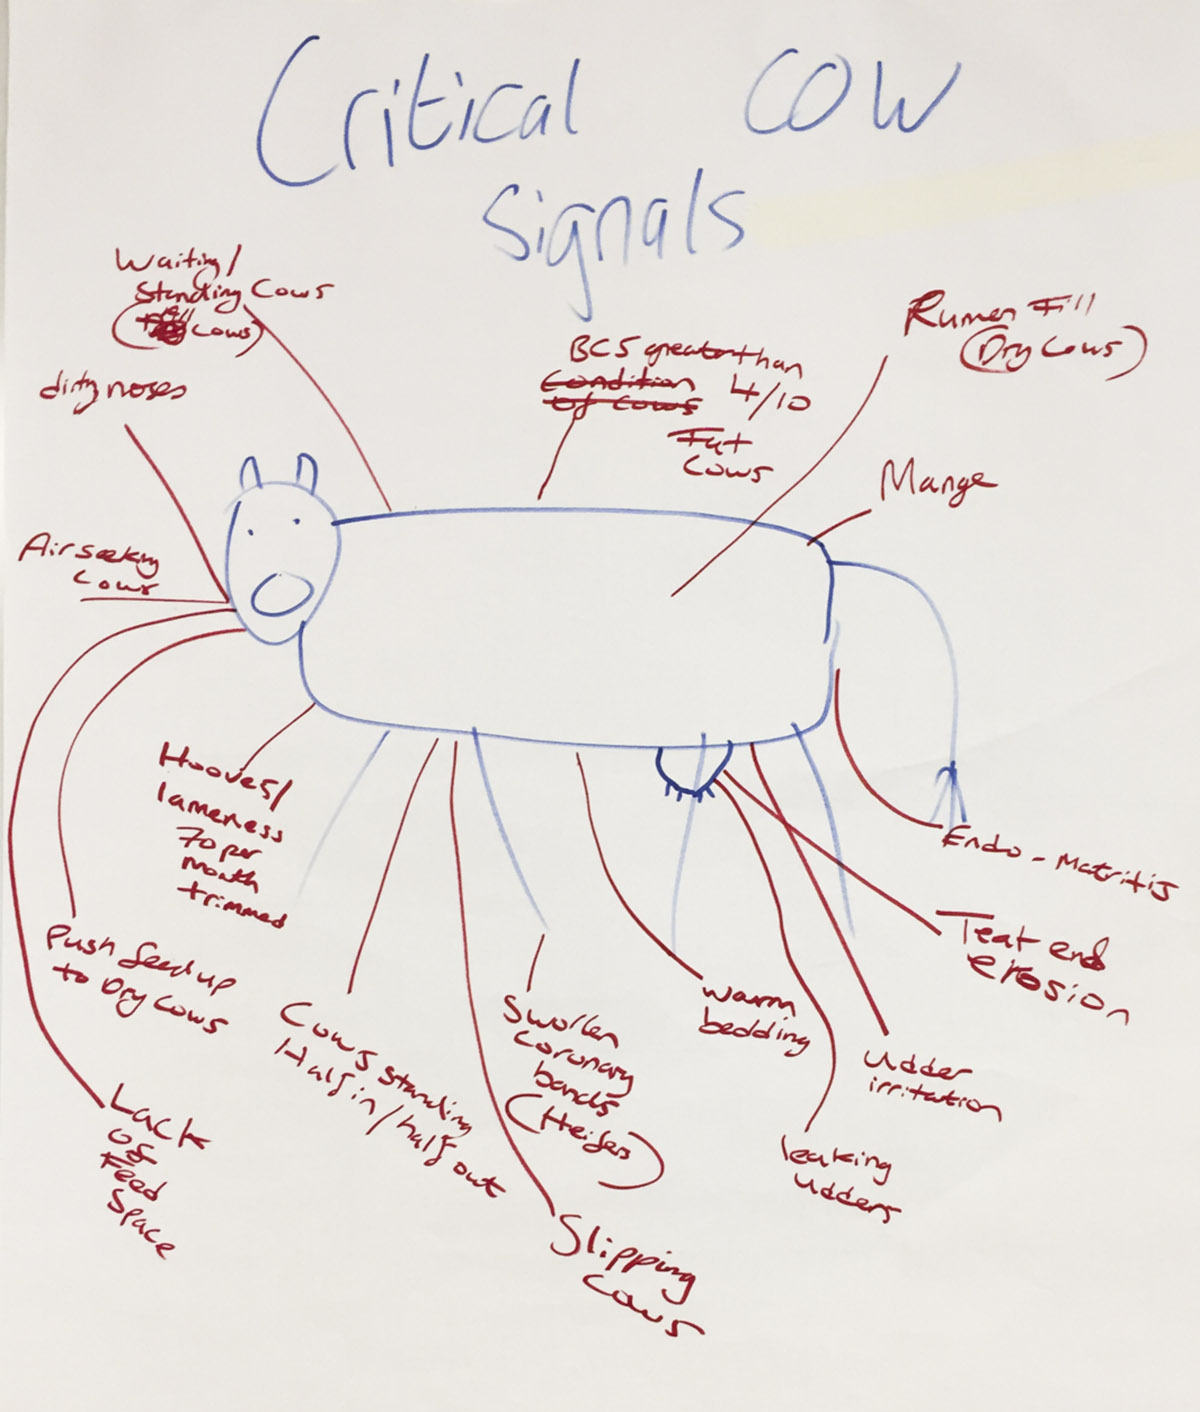 Critical Cow
Signals
Waiting/
Standing Cows
(Cows)
dirty noses
Air seeking
Cows
BCS greater than
Condition 4/10
of Cows
Fat
Cows
Rumen Fill
(Dry Cows)
Mange
Hooves/
lameness
70 per
Month
trimmed
Push feed up
to Dry Cows
Lack
of
Feed
Space
Cows standing
Half in/half out
Swollen
coronary
bands
(Heifers)
Slipping
Cows
Warm
bedding
leaking
udders
Udder
irritation
Teat end
erosion
Endo-Matritis